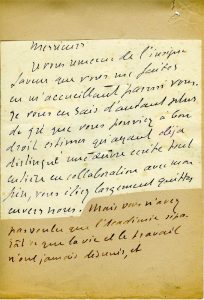 Messieurs
Je vous remercie de l'insigne
faveur que vous me faites
en m'accueillant parmi vous.
Je vous en sais d'autant plus
de gré que vous pouviez à bon
droit estimer qu'ayant déjà
distingué une œuvre écrite tout
entière en collaboration avec mon
père, vous étiez largement quittes
envers nous. Mais vous n'avez
pas voulu que l'Académie sépa
rât ce que la vie et le travail
n'ont jamais désunis, et